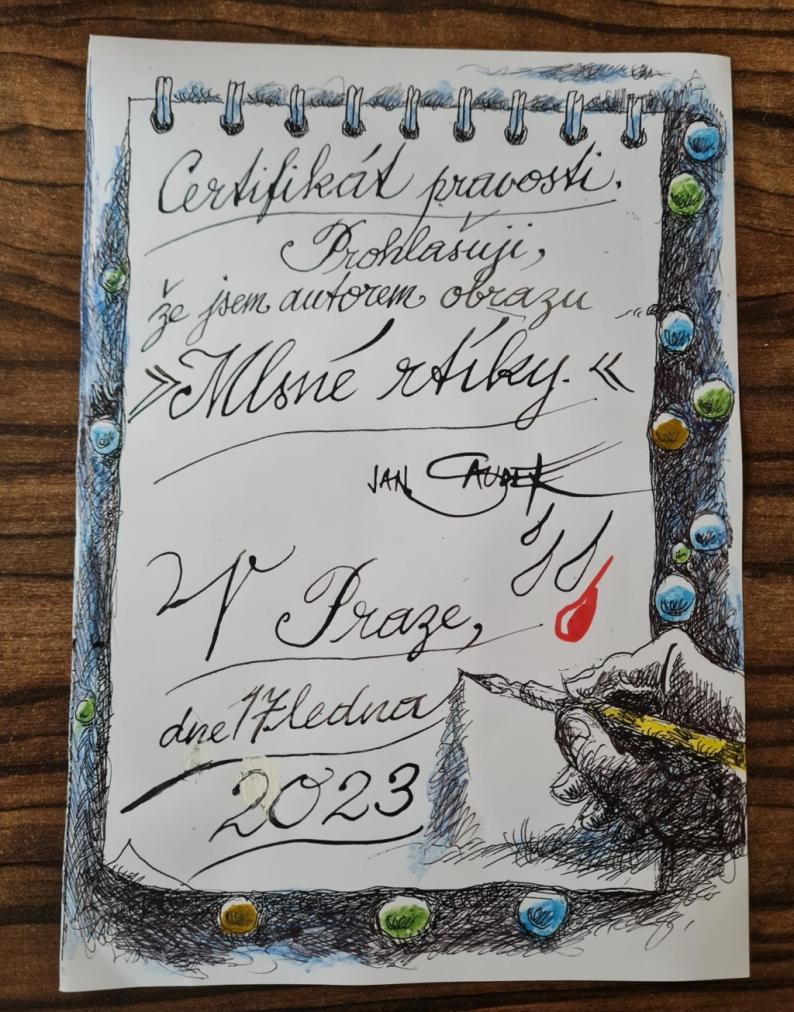 Certifikát pravosti.
Prohlašuji,
že jsem autorem obrazu
»Mlsné rtíky.«
JAN
V Praze,
dne 17 ledna
2023